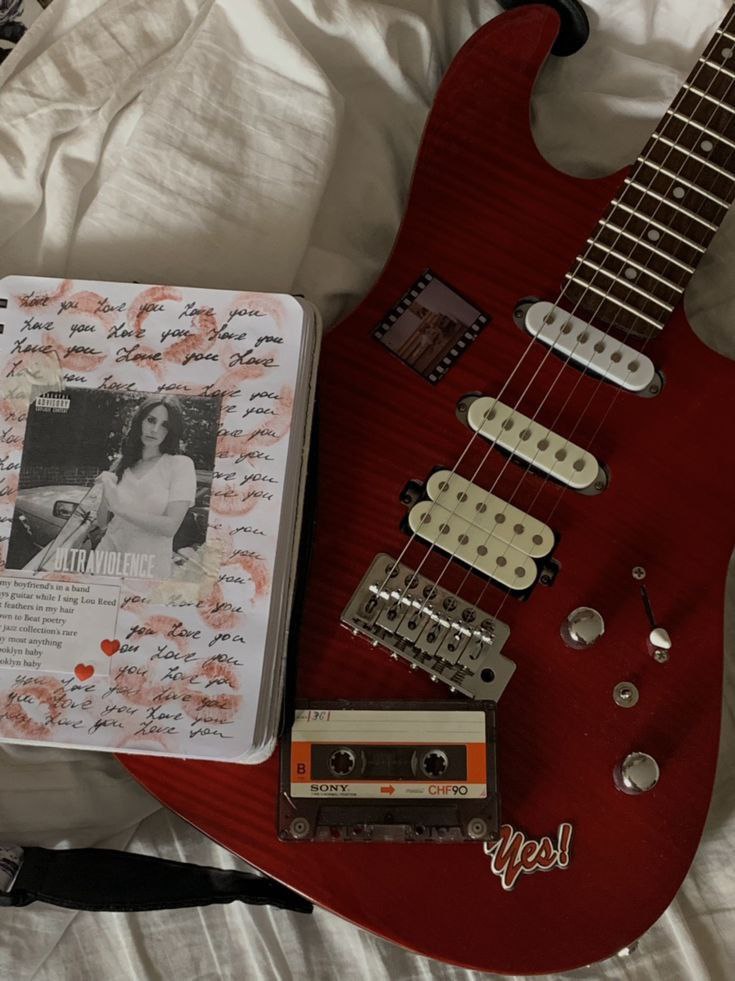 Love you Love you Love you
Love you Love you Love you
Love you Love you Love
Love you Love you
PARENTAL
ADVISORY
EXPLICIT CONTENT
ULTRAVIOLENCE
my boyfriend's in a band
ys guitar while I sing Lou Reed
feathers in my hair
wn to Beat poetry
jazz collection's rare
y most anything
ooklyn baby
ooklyn baby
you Love you
Love you Love you
you Love you Love you
you Love you Love you
Love you Love you Love you
B
SONY
CHF90
Yes!